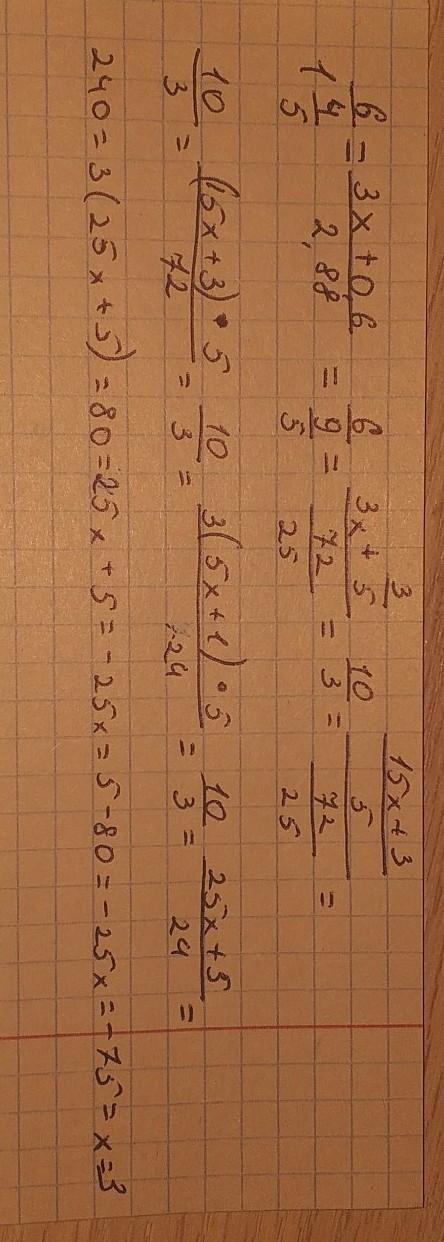 6/(1 4/5) = (3x + 0,6)/2,88 = 6/(9/5) = (3x + 3/5)/(72/25) = 10/3 = ((15x + 3)/5)/(72/25) =
10/3 = ((15x + 3) • 5)/72 = 10/3 = (3(5x + 1) • 5)/24 = 10/3 = (25x + 5)/24 =
240 = 3(25x + 5) = 80 = 25x + 5 = -25x = 5 - 80 = -25x = -75 = x = 3